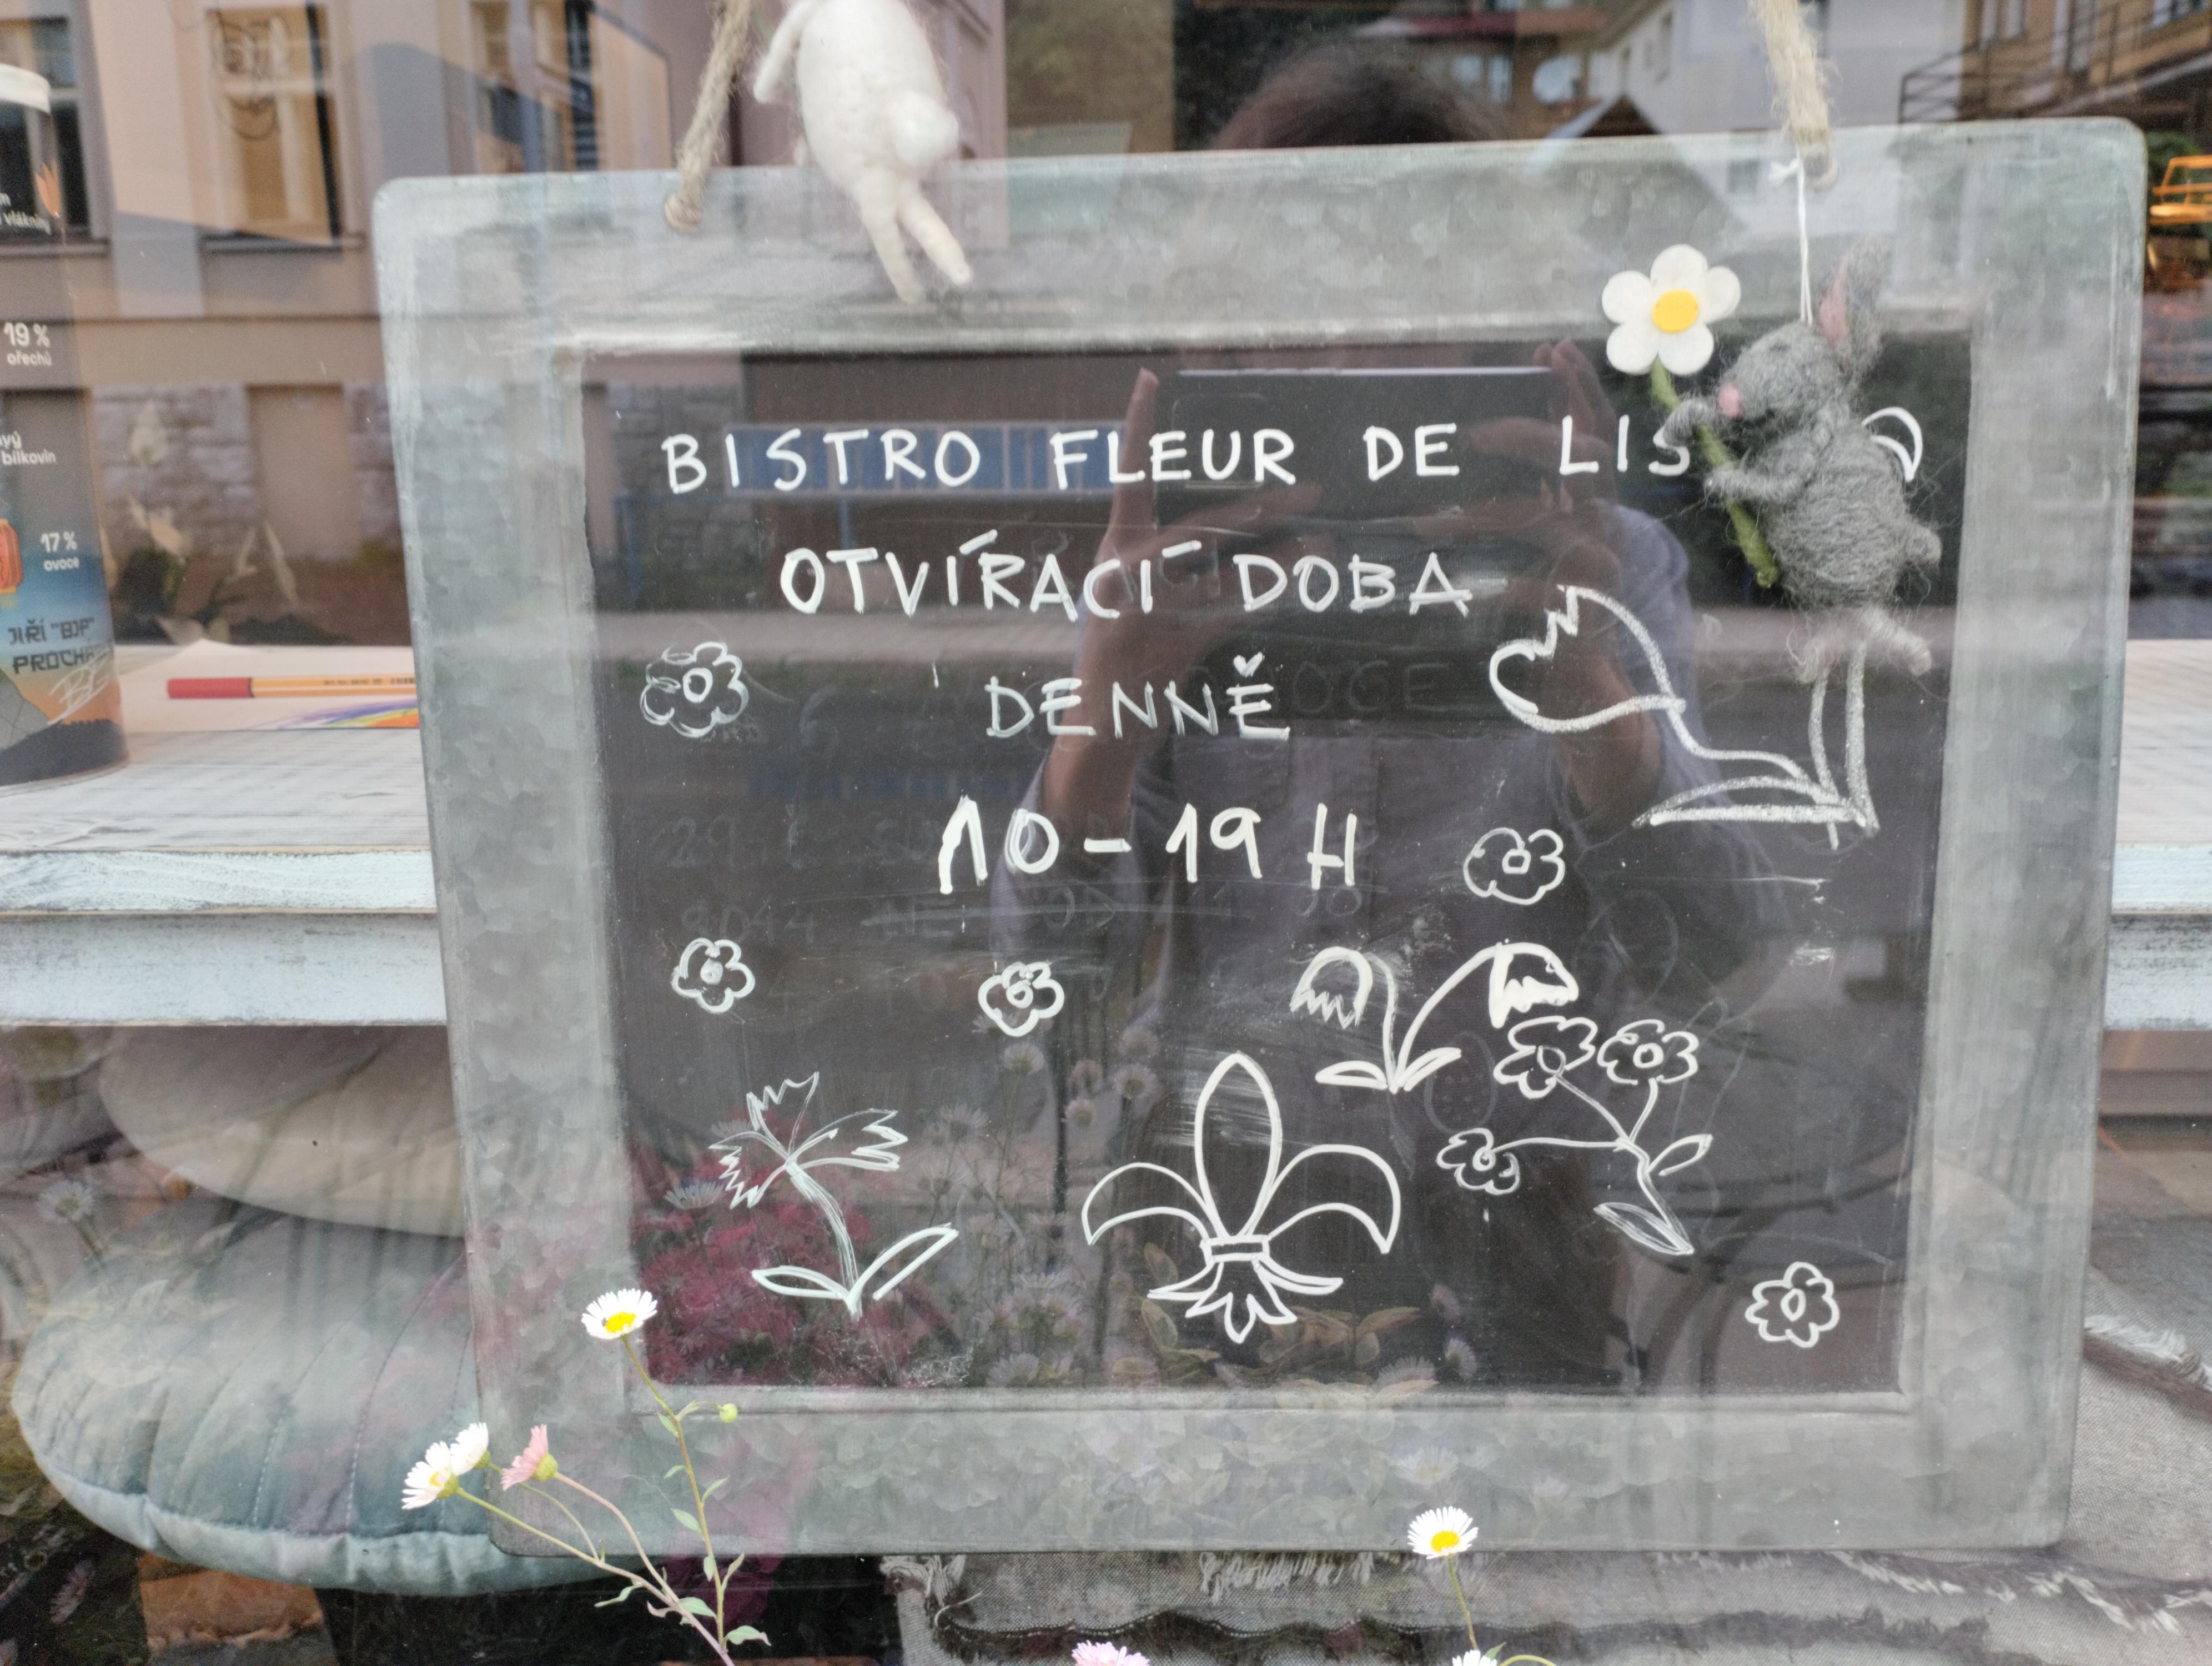 BISTRO FLEUR DE LIS
OTVÍRACÍ DOBA
DENNĚ
10-19 H
19 %
ořechů
bílkovin
17 %
ovoce
JIŘÍ "BJP"